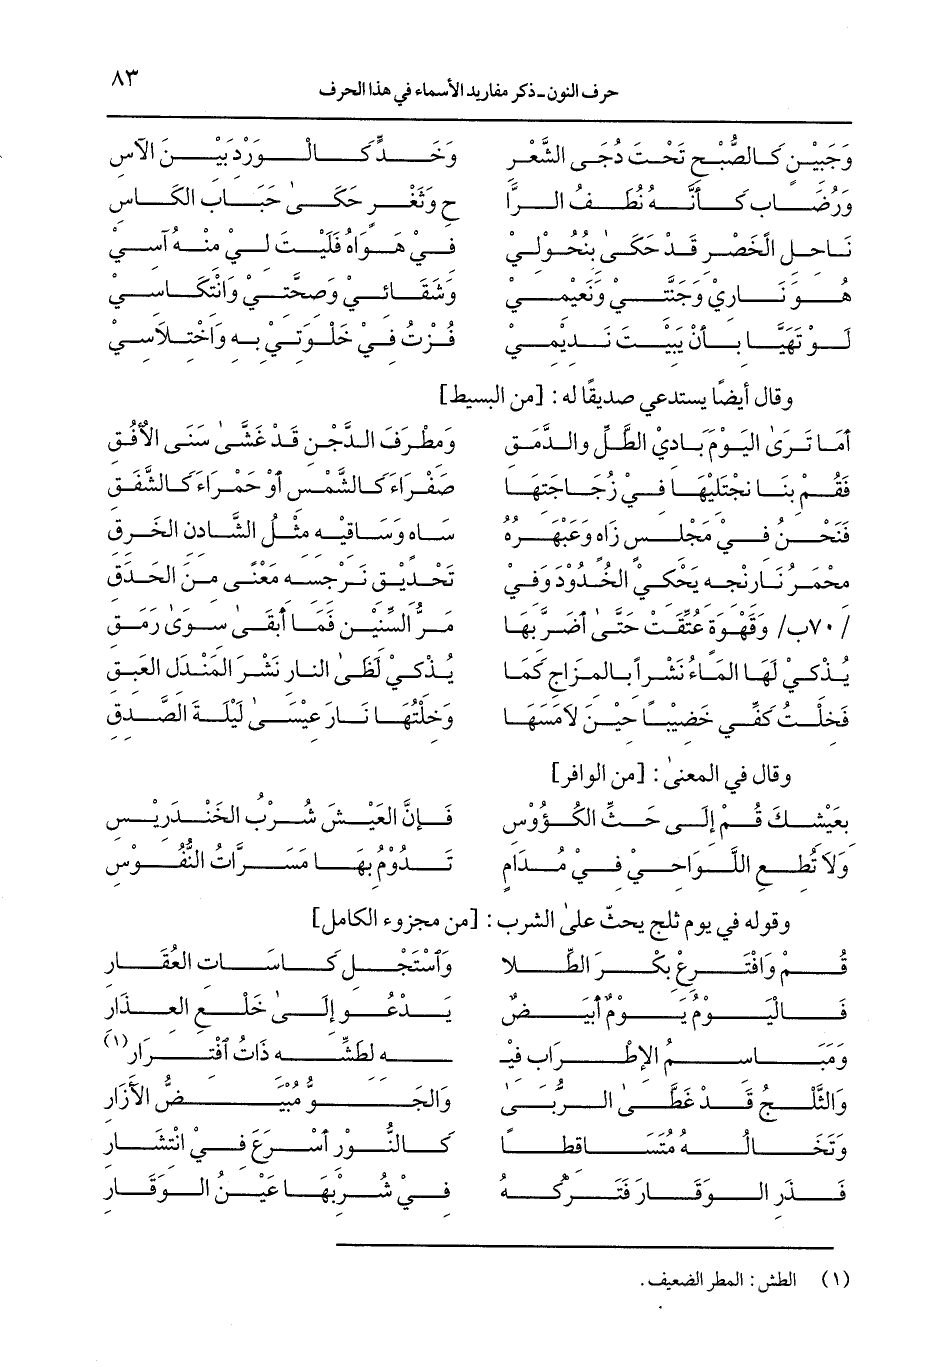 ٨٣
حرف النون ـ ذكر مفاريد الأسماء في هذا الحرف
وَجَبِيْنٍ كَالصُّبْحِ تَحْتَ دُجَى الشَّعْرِ وَخَدٍّ كَالْوَرْدِ بَيْنَ الآسِ
وَرُضَابٍ كَأَنَّهُ نُطَفُ الرَّا حِ وَثَغْرٍ حَكَىٰ حَبَابَ الكَاسِ
نَاحِلِ الْخَصْرِ قَدْ حَكَىٰ بِنُحُولِيْ فِيْ هَوَاهُ فَلَيْتَ لِيْ مِنْهُ آسِيْ
هُوَ نَارِيْ وَجَنَّتِيْ وَنَعِيْمِيْ وَشَقَائِيْ وَصِحَّتِيْ وَانْتِكَاسِيْ
لَوْ تَهَيَّا بِأَنْ يَبِيْتَ نَدِيْمِيْ فُزْتُ فِيْ خَلْوَتِيْ بِهِ وَاخْتِلَاسِيْ
وقال أيضًا يستدعي صديقًا له : [من البسيط]
أَمَا تَرَىٰ اليَوْمَ بَادِيْ الطَّلِّ وَالدَّمَقِ وَمِطْرَفَ الدَّجْنِ قَدْ غَشَّىٰ سَنَى الأُفُقِ
فَقُمْ بِنَا نَجْتَلِيْهَا فِيْ زُجَاجَتِهَا صَفْرَاءَ كَالشَّمْسِ أَوْ حَمْرَاءَ كَالشَّفَقِ
فَنَحْنُ فِيْ مَجْلِسٍ زَاهٍ وَعَبْهَرُهُ سَاهٍ وَسَاقِيْهِ مِثْلُ الشَّادِنِ الخَرِقِ
مُحْمَرُّ نَارِنْجِهِ يَحْكِيْ الخُدُوْدَ وَفِيْ تَحْدِيْقِ نَرْجِسِهِ مَعْنًى مِنَ الحَدَقِ
/ ٧٠ب/ وَقَهْوَةٍ عُتِّقَتْ حَتَّىٰ أَضَرَّ بِهَا مَرُّ السِّنِيْنِ فَمَا أَبْقَىٰ سِوَىٰ رَمَقِ
يُذْكِيْ لَهَا المَاءُ نَشْراً بِالمِزَاجِ كَمَا يُذْكِيْ لَظَىٰ النارِ نَشْرَ المَنْدَلِ العَبِقِ
فَخِلْتُ كَفِّي خَضِيْبًا حِيْنَ لَامَسَهَا وَخِلْتُهَا نَارَ عِيْسَىٰ لَيْلَةَ الصَّدَقِ
وقال في المعنىٰ : [من الوافر]
بِعَيْشِكَ قُمْ إِلَى حَثِّ الكُؤُوْسِ فَإِنَّ العَيْشَ شُرْبُ الخَنْدَرِيْسِ
وَلَا تُطِعِ اللَّوَاحِيْ فِيْ مُدَامٍ تَدُوْمُ بِهَا مَسَرَّاتُ النُّفُوْسِ
وقوله في يوم ثلج يحثّ علىٰ الشرب : [من مجزوء الكامل]
قُمْ وَافْتَرِعْ بِكْرَ الطِّلَا وَٱسْتَجْلِ كَاسَاتِ العُقَارِ
فَاليَوْمُ يَوْمٌ أَبْيَضٌ يَدْعُو إِلَىٰ خَلْعِ العِذَارِ
وَمَبَاسِمُ الإِطْرَابِ فِيْـ ـهِ لِطَشِّهِ ذَاتُ ٱفْتِرَارِ(١)
وَالثَّلْجُ قَدْ غَطَّىٰ الرُّبَىٰ وَالجَوُّ مُبْيَضُّ الأُزَارِ
وَتَخَالُهُ مُتَسَاقِطًا كَالنُّوْرِ أَسْرَعَ فِيْ انْتِشَارِ
فَذَرِ الوَقَارَ فَتَرْكُهُ فِيْ شُرْبِهَا عَيْنُ الوَقَارِ
(١) الطش : المطر الضعيف .